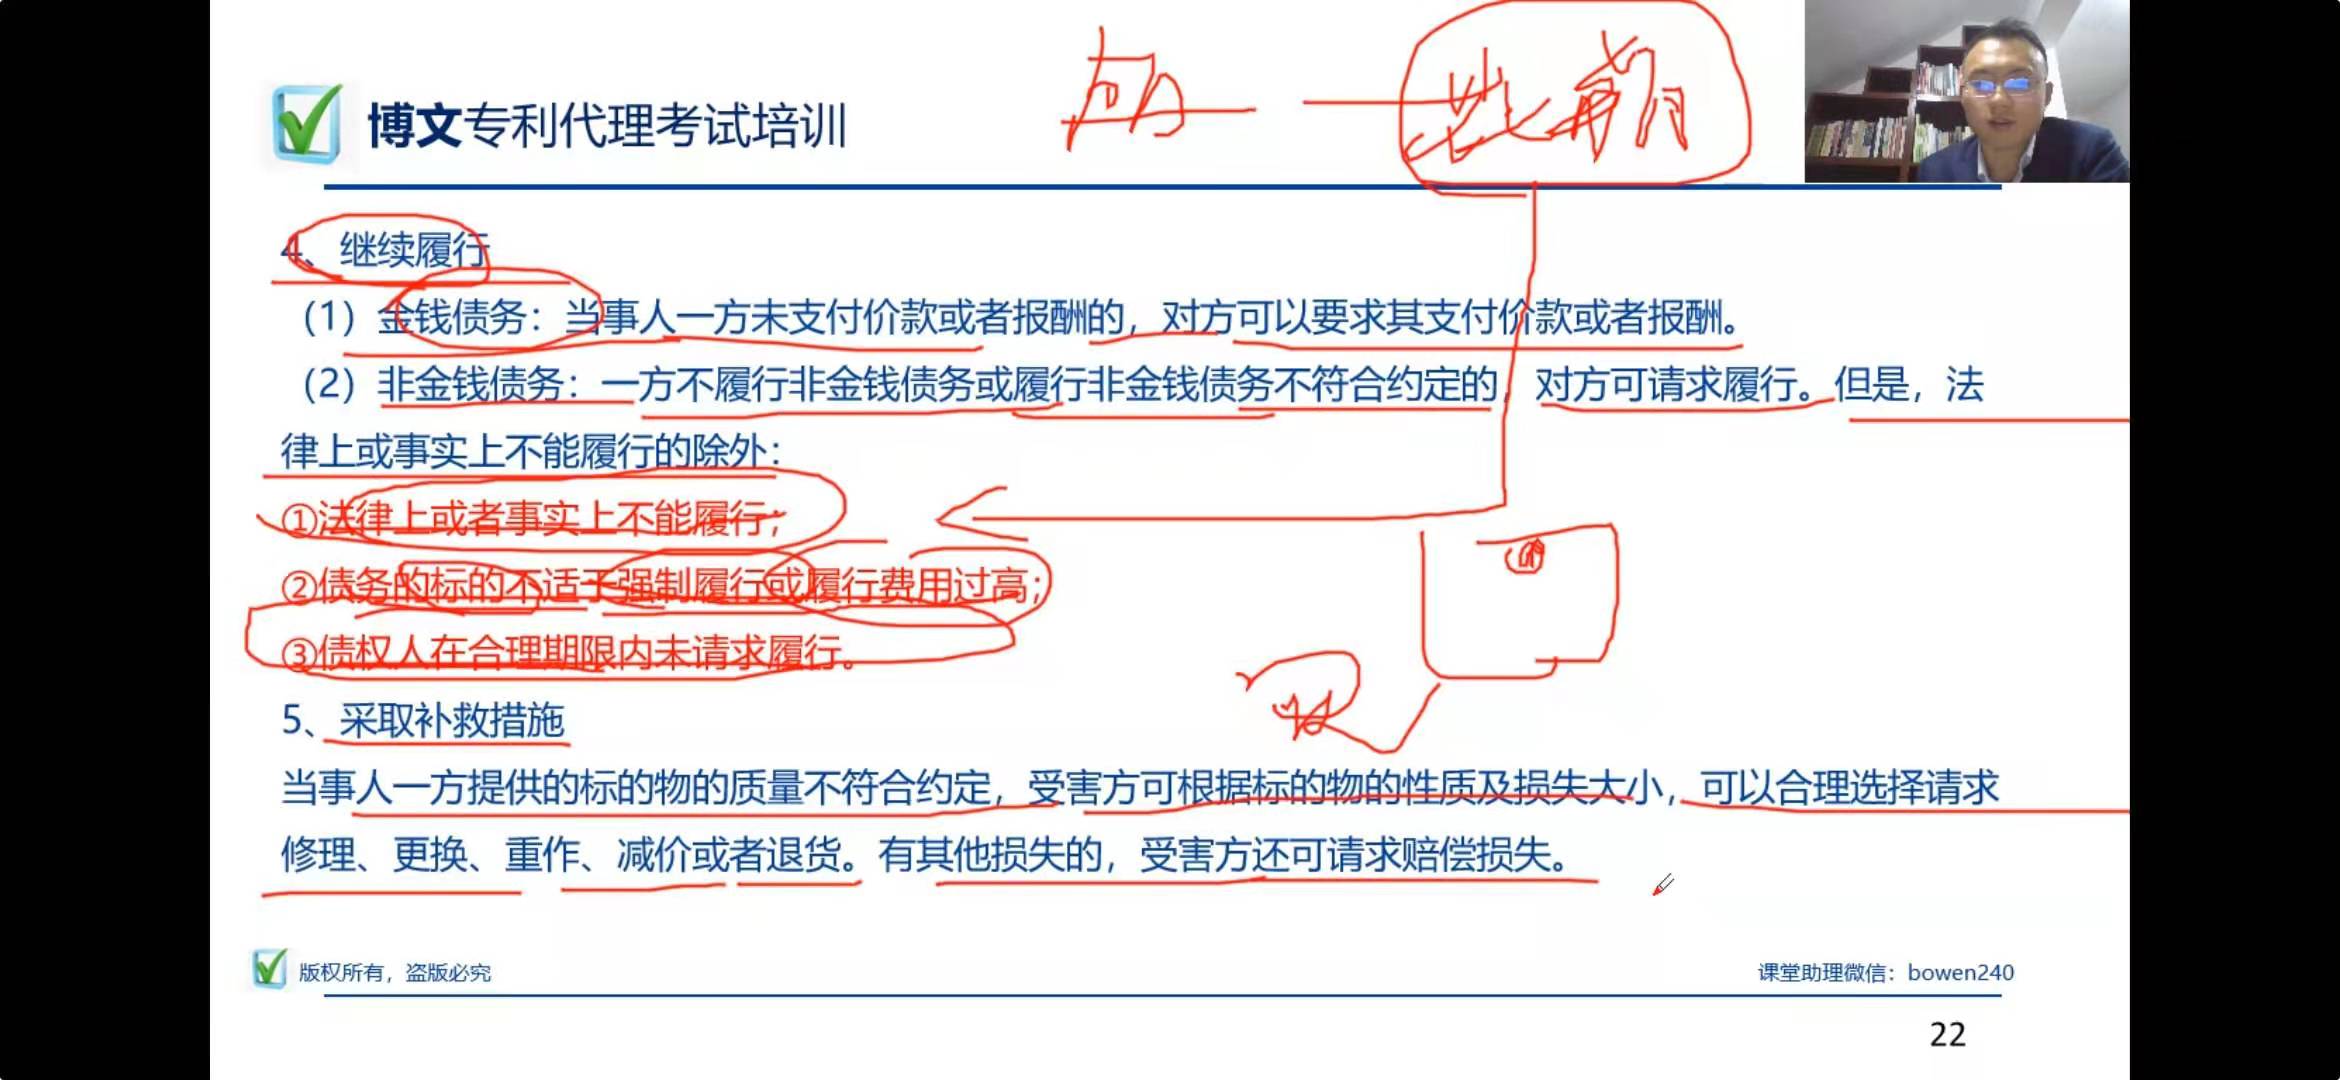 博文专利代理考试培训
4、继续履行
（1）金钱债务：当事人一方未支付价款或者报酬的，对方可以要求其支付价款或者报酬。
（2）非金钱债务：一方不履行非金钱债务或履行非金钱债务不符合约定的，对方可请求履行。但是，法
律上或事实上不能履行的除外：
①法律上或者事实上不能履行；
②债务的标的不适于强制履行或履行费用过高；
③债权人在合理期限内未请求履行。
5、采取补救措施
当事人一方提供的标的物的质量不符合约定，受害方可根据标的物的性质及损失大小，可以合理选择请求
修理、更换、重作、减价或者退货。有其他损失的，受害方还可请求赔偿损失。
版权所有，盗版必究
课堂助理微信：bowen240
22